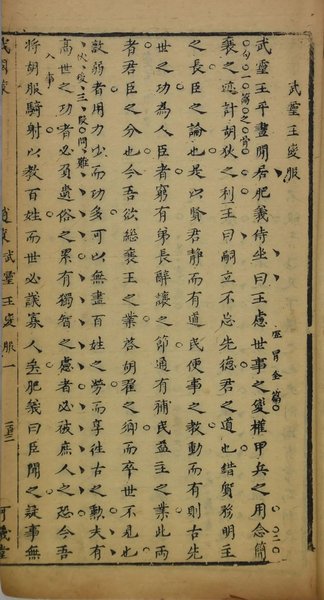 武靈王變服
武靈王平晝閒居肥義侍坐曰王慮世事之變權甲兵之用念簡
襄之迹計胡狄之利王曰嗣立不忘先德君之道也錯質務明王
之長臣之論也是以賢君靜而有道民便事之教動而有則古先
世之功為人臣者窮有弟長辭讓之節通有補民益主之業此兩
者君臣之分也今吾欲繼襄王之業啓胡翟之鄉而卒世不見也
敵弱者用力少而功多可以無盡百姓之勞而享往古之勳夫有
伏後三段問難
高世之功者必負遺俗之累有獨智之慮者必被庶人之恐今吾
入事
將胡服騎射以教百姓而世必議寡人矣肥義曰臣聞之疑事無
趙策 武靈王變服 一